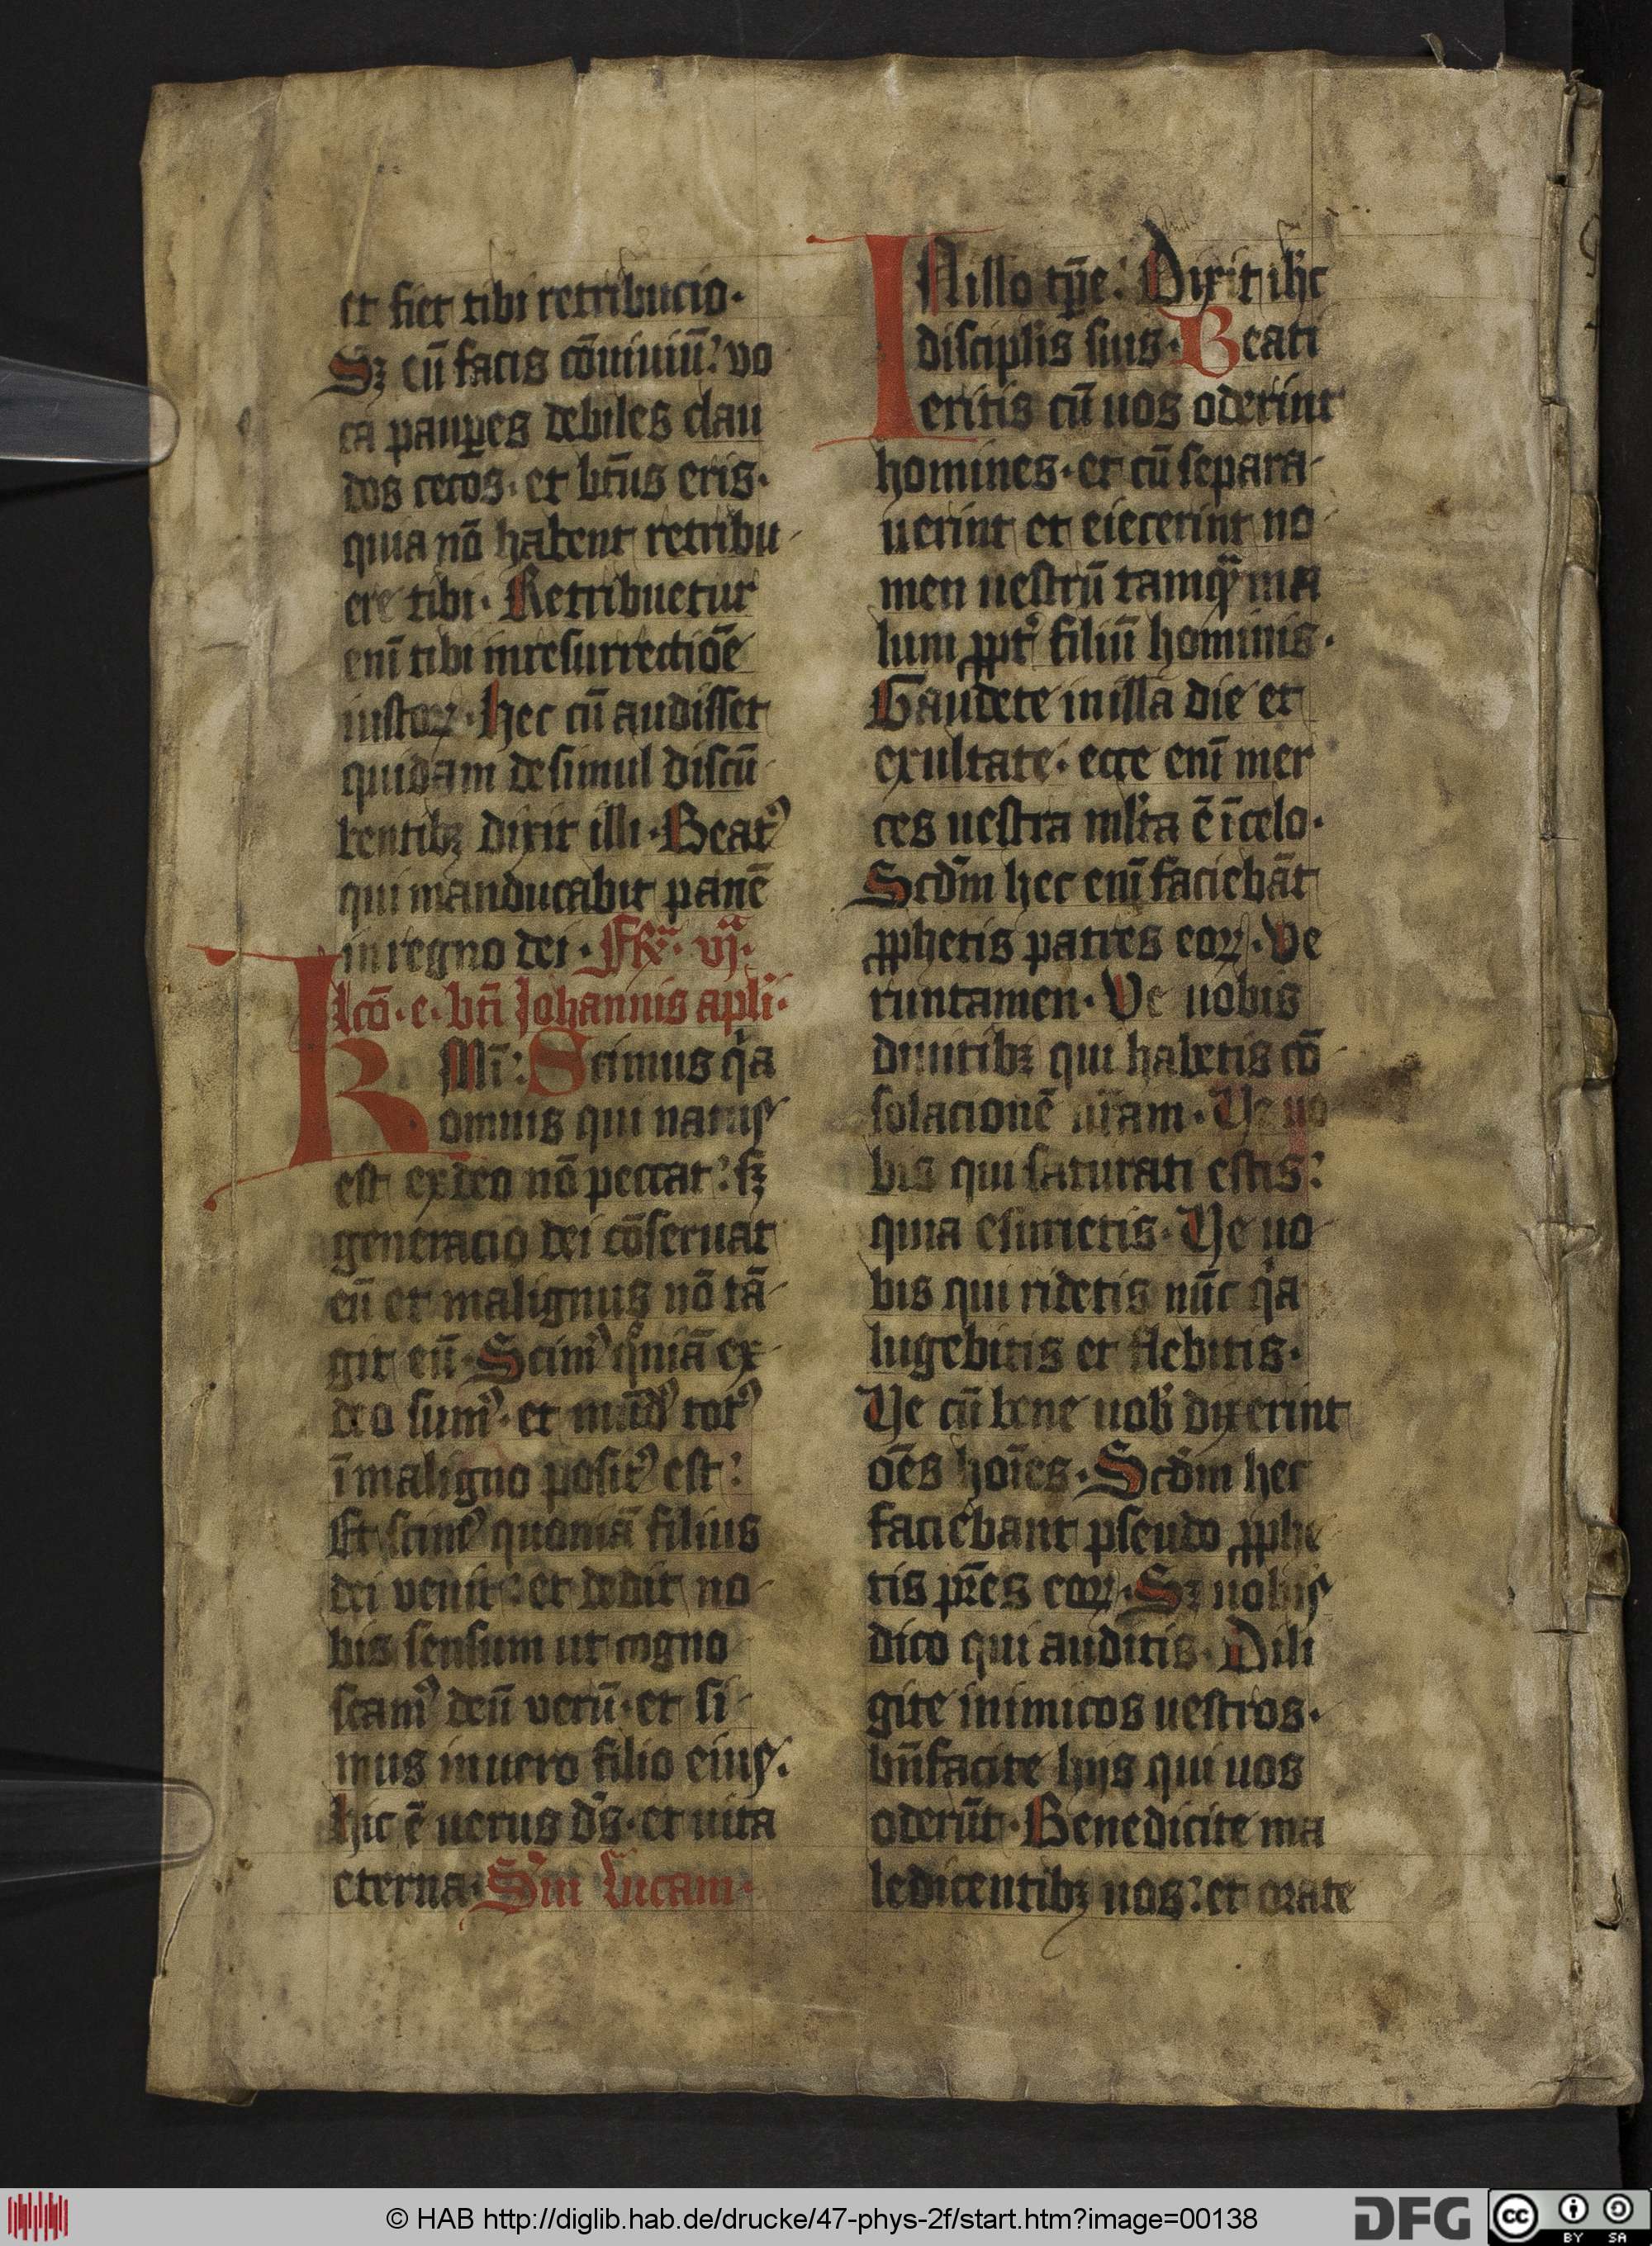 et fiet tibi retribucio.
Sꝫ cū facis cōuiuiū: vo
ca paup̲es debiles clau
dos cecos. et btūs eris.
quia nō habent retribu
ere tibi. Retribuetur
enī tibi in resurrectiōe
iustoꝝ. hec cū audisset
quidam de simul discū
bentibꝫ dixit illi. Beatꝰ
qui manducabit panē
in regno dei. vjᵃ.
Lcō. e. btī Johannis apli.
Kmī: Scimus qͥa
omnis qui natus
est ex deo nō peccat: sꝫ
generacio dei cōseruat
eū et malignus nō tā
git eū. Scimꝰ qm̄iā ex
deo sumꝰ. et mūdꝰ totꝰ
ī maligno positꝰ est:
Et scimꝰ quoniā filius
dei venit: et dedit no
bis sensum ut cogno
scamꝰ deū verū. et si
mus in uero filio eius.
hic ē uerus ds̄. et uita
eterna. Sm̄ Lucam.
IN illo tp̄e: Dixit ihc̄
disciplis suis. Beati
eritis cū uos oderint
homines. et cū separa
uerint et eiecerint no
men uestrū tamqͣ ma
lum ꝓpt̾ filiū hominis.
Gaudete in illa die et
exultate. ecce enī mer
ces uestra ml̄ta ē ī celo.
Scd̄m hec enī faciebāt
ꝓphetis patres eoꝝ. Ve
runtamen. Ve uobis
diuitibꝫ qui habetis cō
solacionē ur̄am. Ve uo
bis qui saturati estis:
quia esurietis. Ve uo
bis qui ridetis nūc qͥa
lugebitis et flebitis.
Ve cū bene uob̾ dixerint
oēs hoīes. Scd̄m hec
faciebant pseudo ꝓphe
tis pr̄es eoꝝ. Sꝫ uobis
dico qui auditis. Dili
gite inimicos uestros.
bn̄facite hijs qui uos
oderūt. Benedicite ma
ledicentibꝫ uos: et orate
© HAB http://diglib.hab.de/drucke/47-phys-2f/start.htm?image=00138
DFG
cc
BY SA